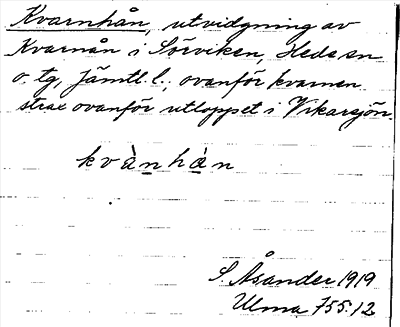 Kvarnhån, utvidgning av
Kvarnån i Sörviken, Hede sn
o. tg, Jämtl. l.; ovanför kvarnen
strax ovanför utloppet i Vikarsjön.
kvànhàn
S. Åsander 1919
Ulma 755:12